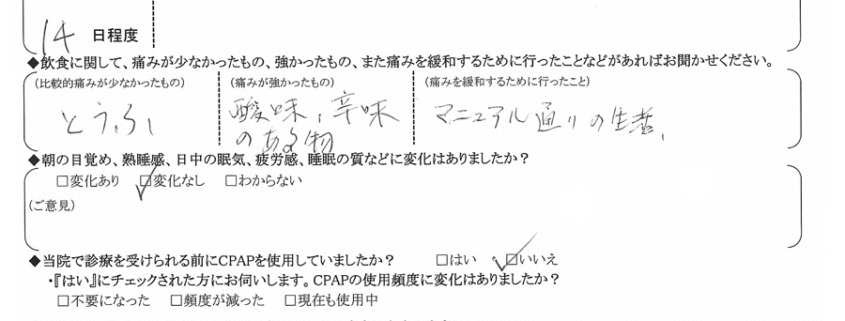 14 日程度
◆飲食に関して、痛みが少なかったもの、強かったもの、また痛みを緩和するために行ったことなどがあればお聞かせください。
(比較的痛みが少なかったもの) (痛みが強かったもの) (痛みを緩和するために行ったこと)
とうふ 酸味、辛味 マニュアル通りの生活。
のある物
◆朝の目覚め、熟睡感、日中の眠気、疲労感、睡眠の質などに変化はありましたか？
□変化あり ☑変化なし □わからない
(ご意見)
◆当院で診療を受けられる前にCPAPを使用していましたか？ □はい ☑いいえ
・『はい』にチェックされた方にお伺いします。CPAPの使用頻度に変化はありましたか？
□不要になった □頻度が減った □現在も使用中